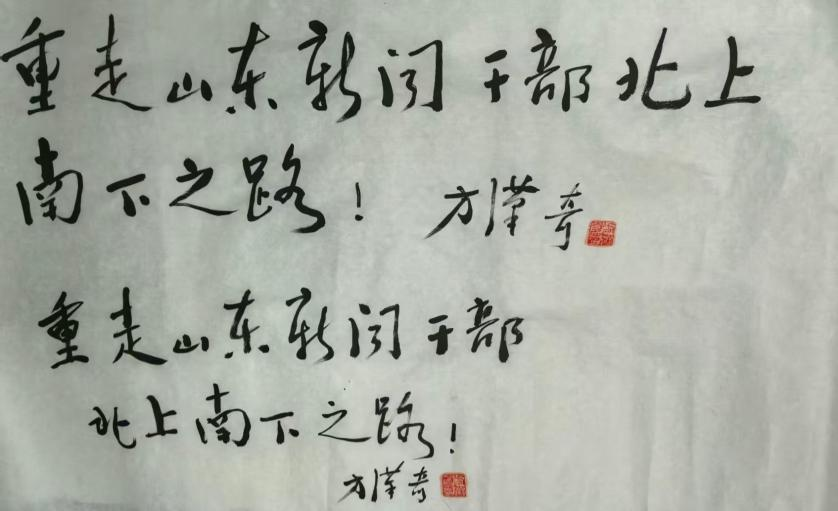 重走山东新闻干部北上
南下之路！ 方漢奇
重走山东新闻干部
北上南下之路！
方漢奇